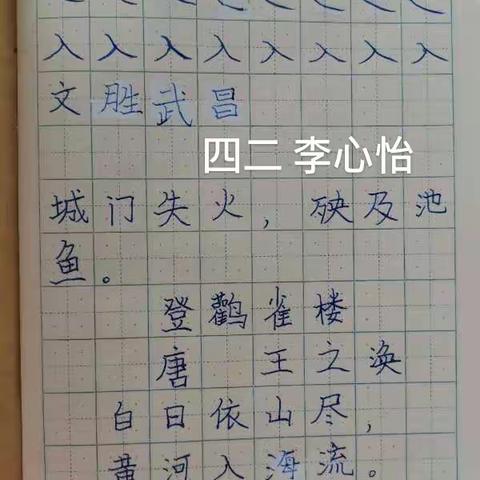 入入入入入入入入
文胜武昌
四二 李心怡
城门失火，殃及池
鱼。
登鹳雀楼
唐 王之涣
白日依山尽，
黄河入海流。